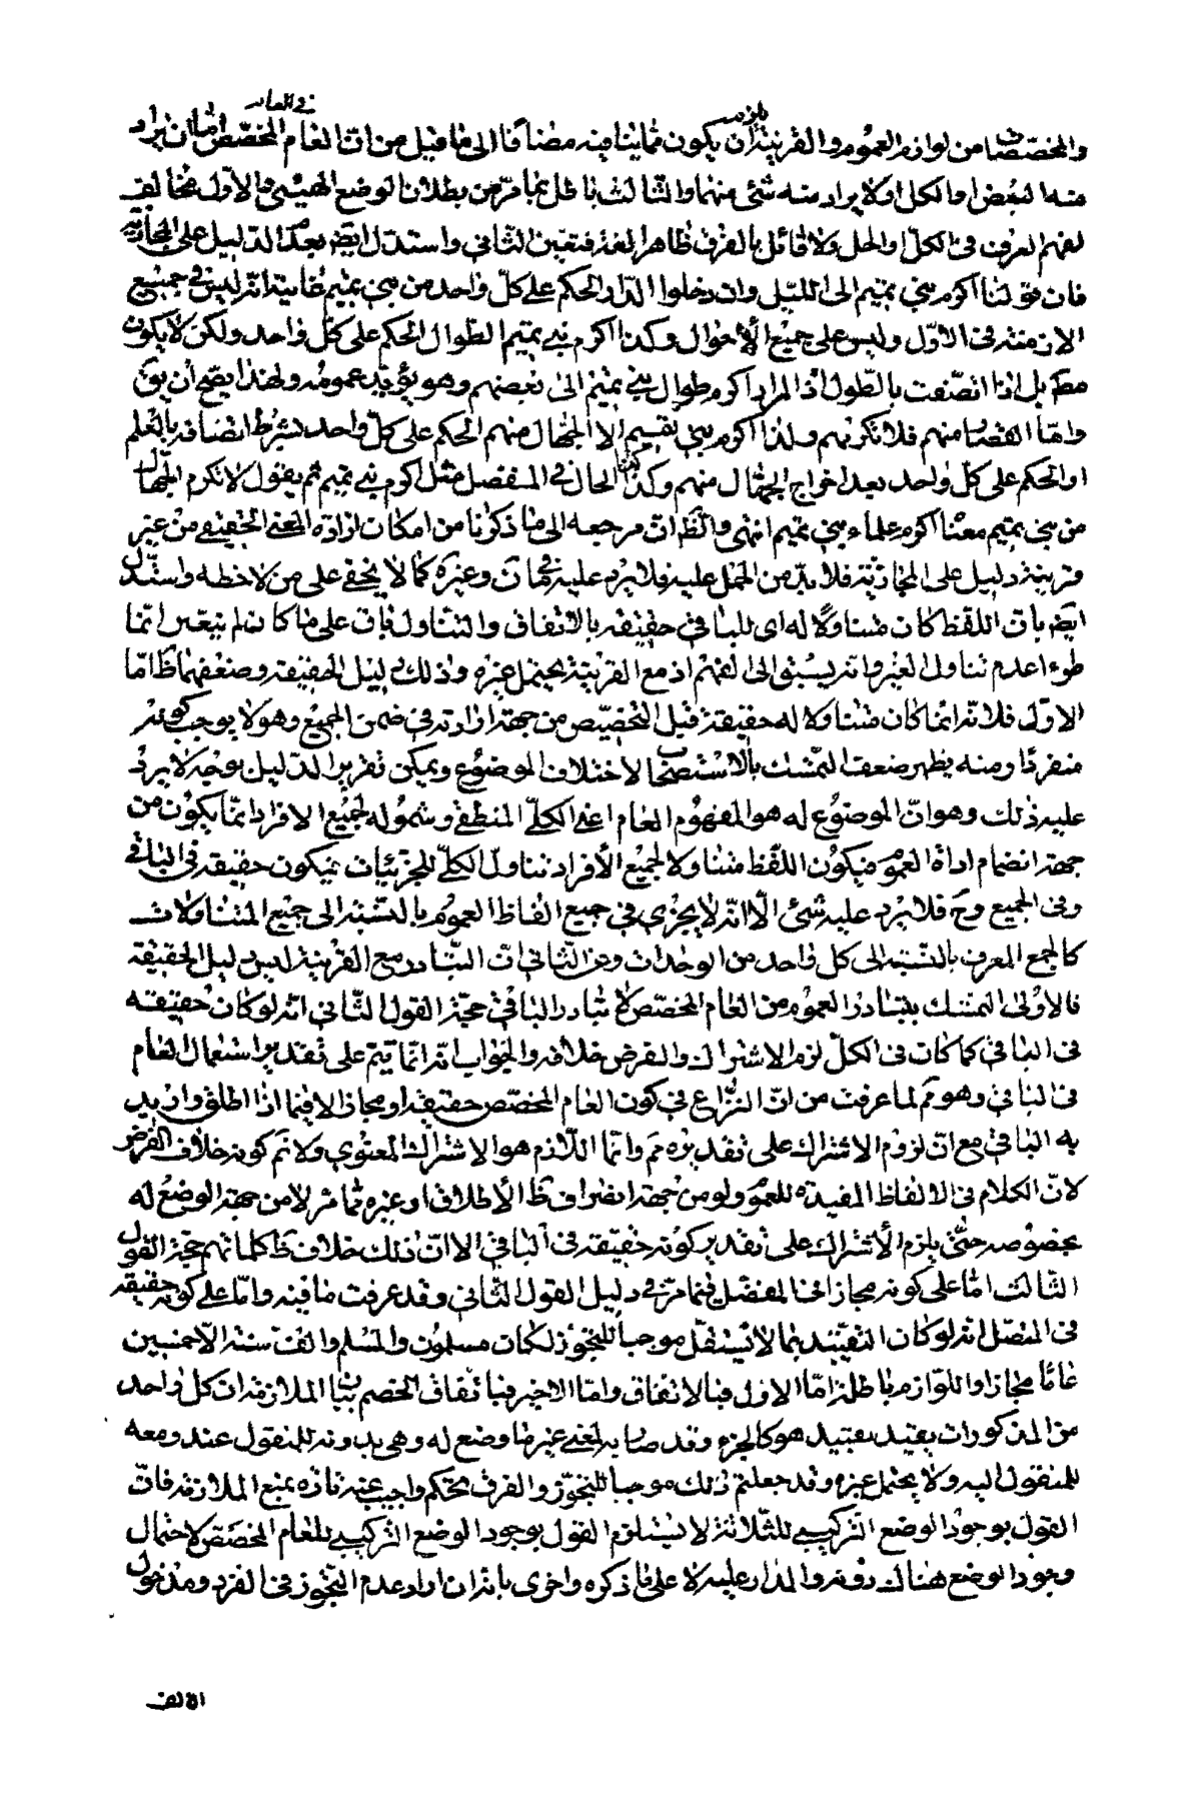 في العام
يلزمه
والمخصصات من لوازم العموم والقرينة ان يكون مما ينافيه مضافا الى ما قيل من ان العام المخصص اما ان يراد
منه البعض او الكل او لا يراد منه شئ منهما والثالث باطل بما مر من بطلان الوضع الهيئي والاول مخالف
لفهم العرف في الكل او الجل ولا قائل بالفرق ظاهرا لغة فتعين الثاني واستدل ايضا بعد الدليل على المجازية
فان قولنا اكرم بني تميم الى الليل وان دخلوا الدار الحكم على كل واحد من بني تميم غاية انه ليس في جميع
الازمنة في الاول وليس على جميع الأحوال وكذا اكرم بني تميم الطوال الحكم على كل واحد ولكن لا يكون
مط بل اذا اتصفت بالطول اذ المراد اكرم طوال بني تميم الى بعضهم وهو يؤيد عمومه ولهذا يصح أن يق
واما القصار منهم فلا تكرمهم ولذا اكرم بني تميم الا الجهال منهم الحكم على كل واحد بشرط اتصافه بالعلم
او الحكم على كل واحد بعد اخراج الجهال منهم وكذا الحال في المنفصل مثل اكرم بني تميم ثم يقول لا تكرم الجهال
من بني تميم معناه اكرم علماء بني تميم انتهى والظ ان مرجعه الى ما ذكرنا من امكان ارادة المعنى الحقيقي من غير
قرينة دليل على المجازية فلا بد من الحمل عليه فلا يرد عليه وغيره كما لا يخفى على من لاحظه واستدل
ايض بان اللفظ كان متناولا له اى للباقي حقيقة بالاتفاق والتناول باق على ما كان لم يتغير انما
طرء عدم تناول الغير وانه يسبق الى الفهم اذ مع القرينة يحتمل غيره وذلك دليل الحقيقة وضعفهما ظ اما
الاول فلانه انما كان متناولا له حقيقة قبل التخصيص من جهة ارادته في ضمن الجميع وهو لا يوجب كونه
منفردا ومنه يظهر ضعف التمسك بالاستصحاب لاختلاف الموضوع ويمكن تقرير الدليل بوجه لا يرد
عليه ذلك وهو ان الموضوع له هو المفهوم العام اعني الكلي المنطقي وشموله لجميع الافراد انما يكون من
جهة انضمام اداة العموم فيكون اللفظ متناولا لجميع الأفراد تناول الكلي للجزئيات فيكون حقيقة في الباقي
وفي الجميع وح فلا يرد عليه شئ الا انه لا يجزي في جميع الفاظ العموم بالنسبة الى جميع المتناولات
كالجمع المعرف بالنسبة الى كل واحد من الوحدات وعن الثاني ان التبادر مع القرينة ليس دليل الحقيقة
فالاولى التمسك بتبادر العموم من العام المخصص لا تبادر الباقي حجة القول الثاني انه لو كان حقيقة
في الباقي كما كان في الكل لزم الاشتراك والفرض خلافه والجواب انه انما يتم على تقدير استعمال العام
في الباقي وهو مم لما عرفت من ان النزاع في كون العام المخصص حقيقة او مجاز الا فيما اذا اطلق واريد
به الباقي مع ان لزوم الاشتراك على تقديره مم وانما اللازم هو الاشتراك المعنوي ولا ثم كونه خلاف الفرض
لان الكلام في الالفاظ المفيدة للعموم ولو من جهة انصراف ظ الأطلاق او غيره مما مر لا من جهة الوضع له
بخصوصه حتى يلزم الأشتراك على تقدير كونه حقيقة في الباقي الا ان ذلك خلاف ظ كلماتهم حجة القول
الثالث اما على كونه مجازا في المنفصل فيما مر في دليل القول الثاني وقد عرفت ما فيه واما على كونه حقيقة
في المتصل انه لو كان التقييد بما لا يستقل موجبا للتجوز لكان مسلمون والمسلم والف سنة الا خمسين
عاما مجازا واللوازم باطلة اما الاول فبالاتفاق واما الاخير فباتفاق الخصم بيان الملازمة ان كل واحد
من المذكورات يقيد بقيد هو كالجزء وقد صار به لمعنى غير ما وضع له وهي بدونه للمنقول عنه ومعه
للمنقول اليه ولا يحتمل غيره وقد جعلتم ذلك موجبا للتجوز والفرق تحكم واجيب عنه تارة بمنع الملازمة فان
القول بوجود الوضع التركيبي للثلاثة لا يستلزم القول بوجود الوضع التركيبي للعام المخصص لاحتمال
وجود الوضع هناك دونه والمدار عليه لا على ما ذكره واخرى بانه ان اراد عدم التجوز في الفرد ومدخول
الالف